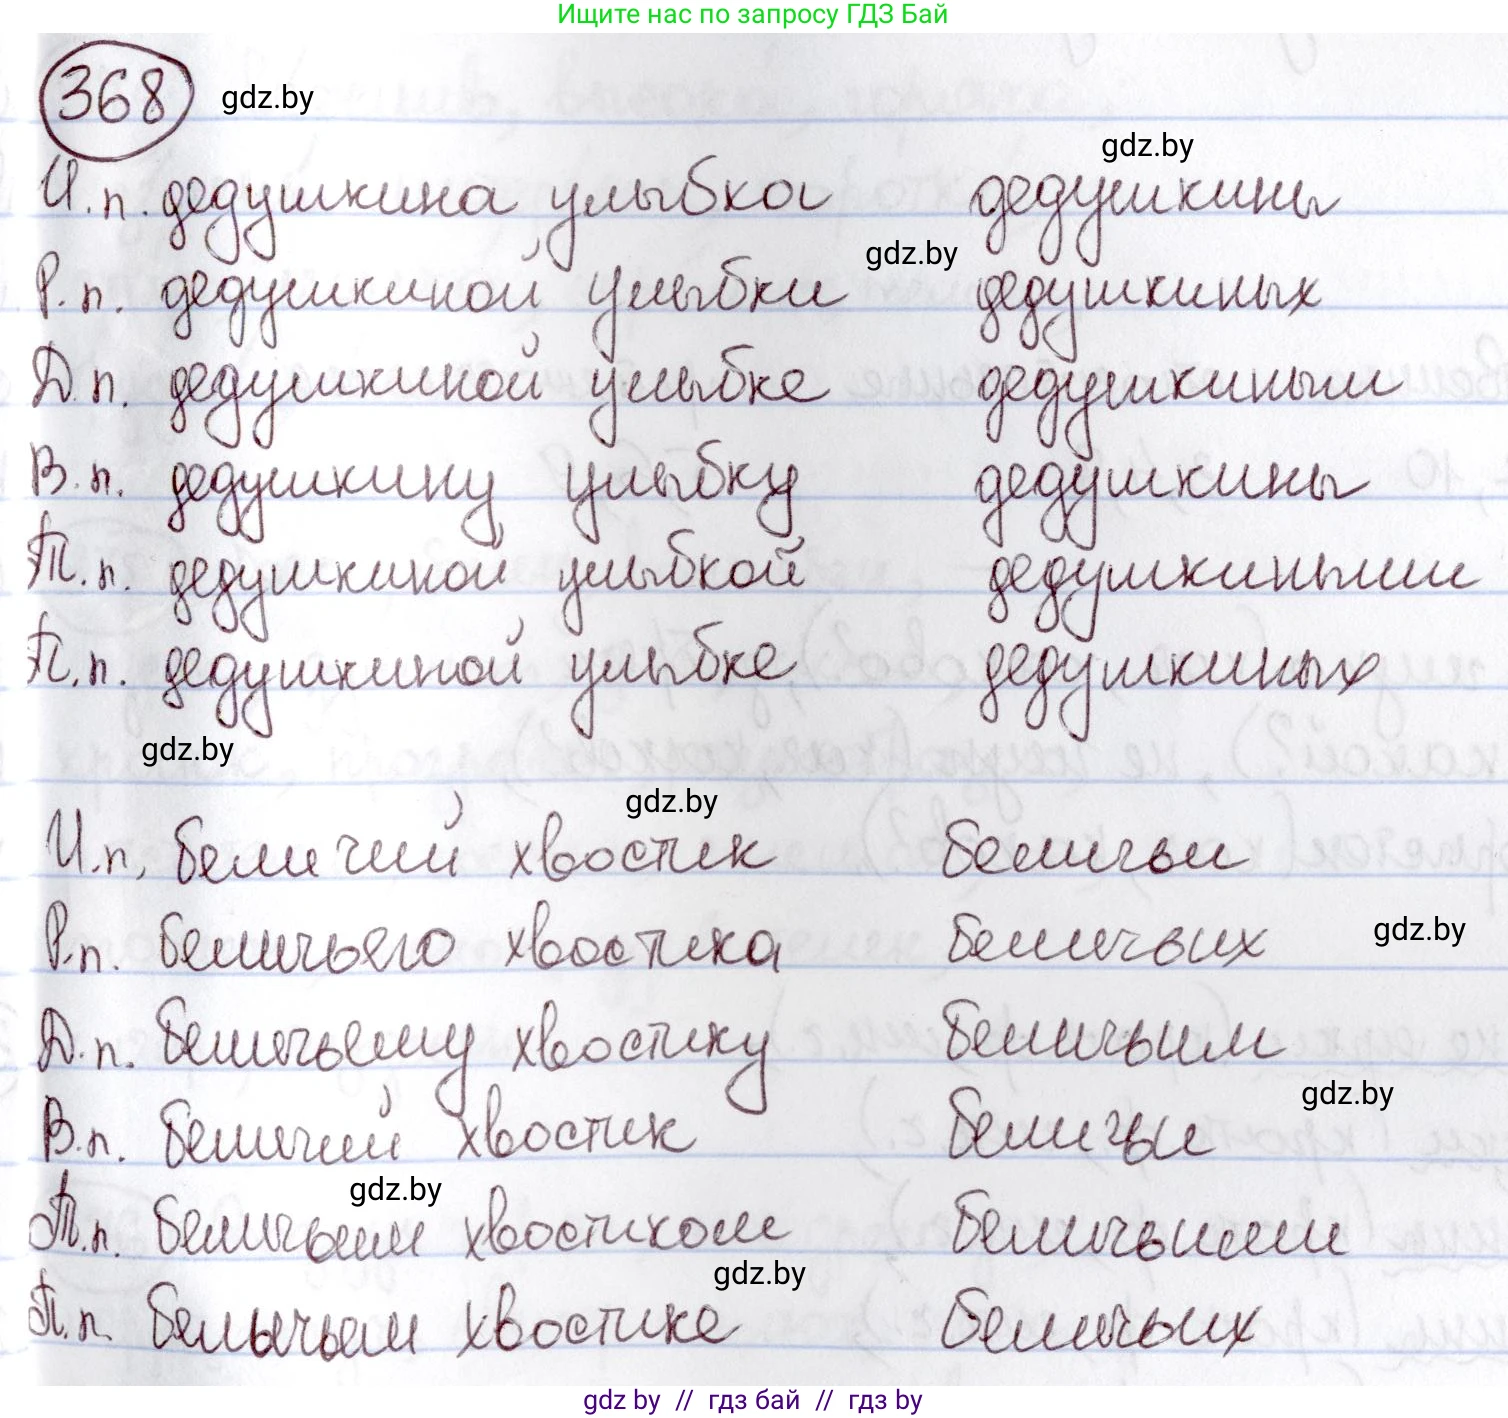 Ищите нас по запросу ГДЗ Бай
368 gdz.by
gdz.by
И.п. дедушкина улыбка дедушкины
gdz.by
Р.п. дедушкиной улыбки дедушкиных
Д.п. дедушкиной улыбке дедушкиным
В.п. дедушкину улыбку дедушкины
Т.п. дедушкиной улыбкой дедушкиными
П.п. дедушкиной улыбке дедушкиных
gdz.by
gdz.by
И.п. беличий хвостик беличьи
Р.п. беличьего хвостика беличьих gdz.by
Д.п. беличьему хвостику беличьим
gdz.by
В.п. беличий хвостик беличьи
gdz.by
Т.п. беличьим хвостиком беличьими
gdz.by
П.п. беличьем хвостике беличьих
gdz.by // гдз бай // гдз by